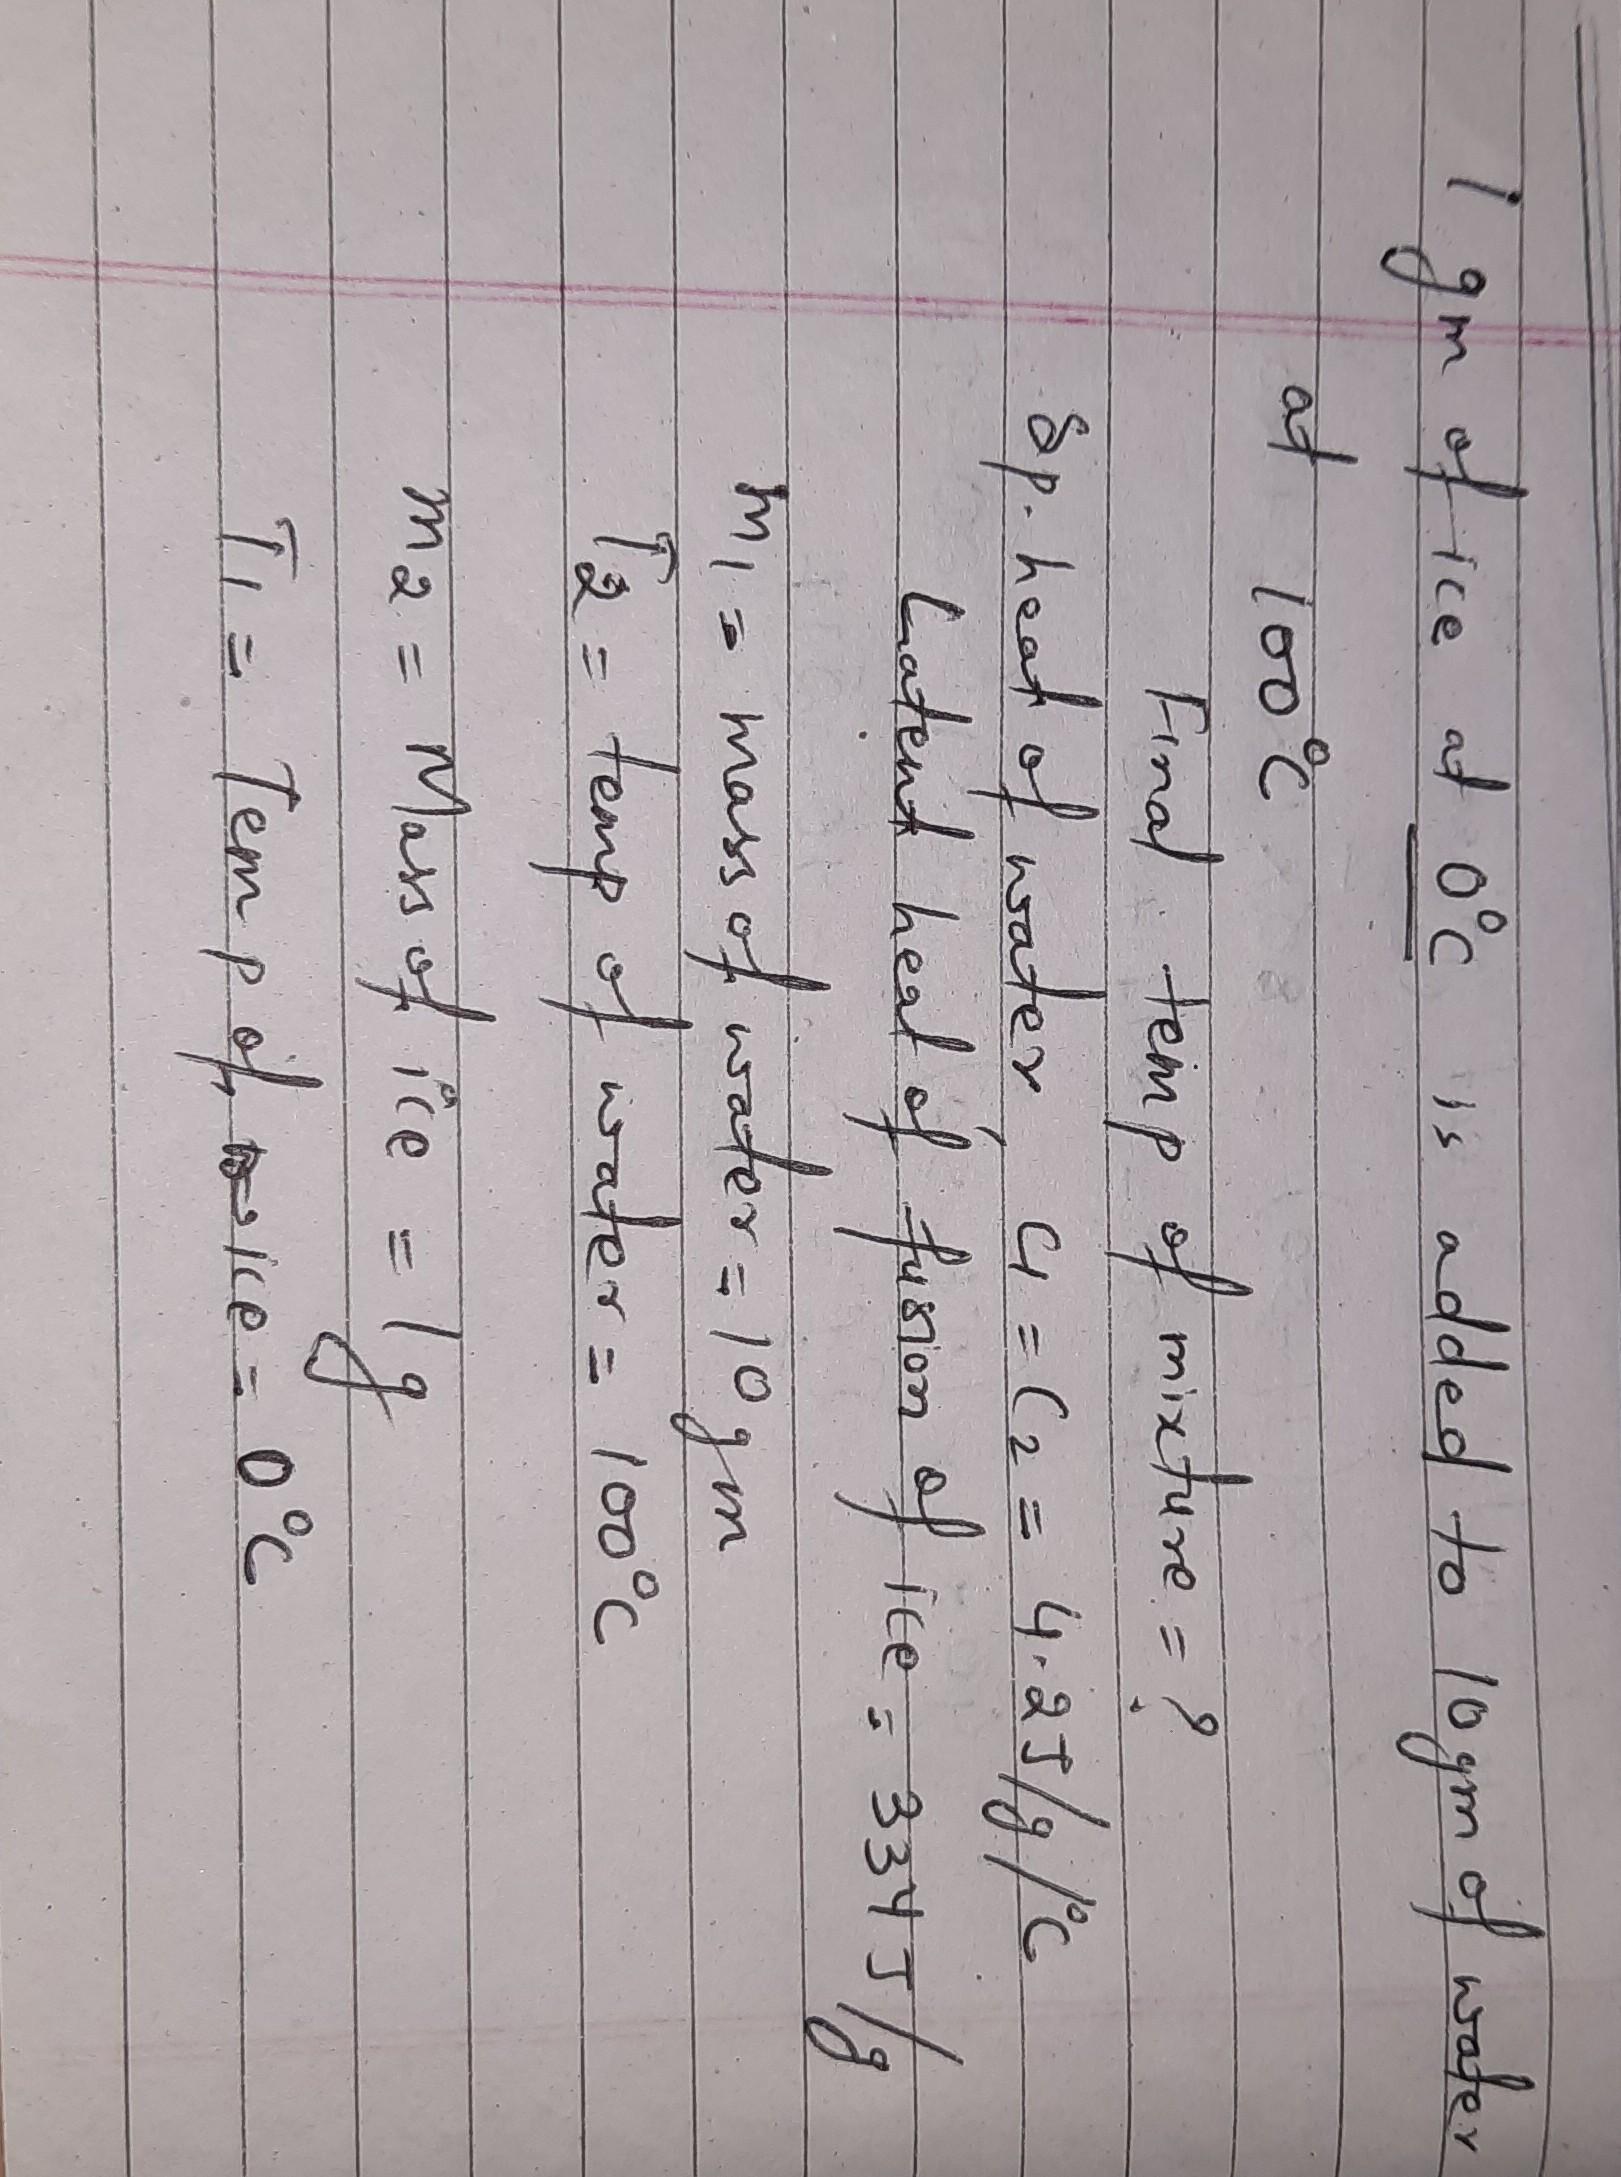 1 gm of ice at 0°C is added to 10gm of water
at 100°C
Final temp of mixture = ?
Sp. heat of water, C1 = C2 = 4.2J/g/°C
Latent heat of fusion of ice = 334 J/g
m1 = mass of water = 10 gm
T2 = temp of water = 100°C
m2 = Mass of ice = 1g
T1 = Temp of ice = 0°C